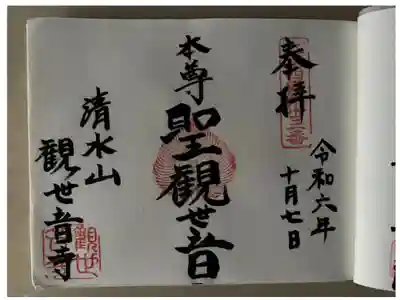 奉拝
令和六年
十月七日
本尊
聖觀世音
清水山
観世音寺